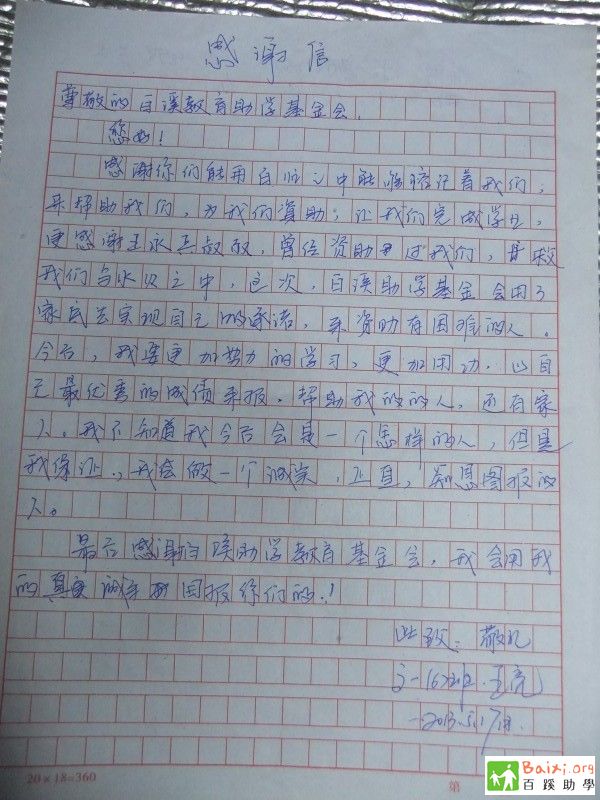 感谢信
尊敬的百溪教育助学基金会.
您好!
感谢你们能用百忙之中能够惦记着我们,
来帮助我们,为我们资助;让我们完成学业,
更感谢王永 叔叔,曾经资助 过我们, 救
我们与水火之中,这次,百溪助学基金会用了
实现自己的承诺,来资助有困难的人。
今后,我要更加努力的学习,更加用功.以自
己最优秀的成绩来报.帮助我的的人,还有家
人。我不知道我今后会是一个怎样的人,但是
我保证.,我会做一个诚实,正直,知恩图报的
人。
最后感谢百溪助学教育基金会,我会用我
的真 回报你们的.!
此致:敬礼
一(6)班.王亮
2013.
20×18=360
第
Baixi.org
百蹊助學